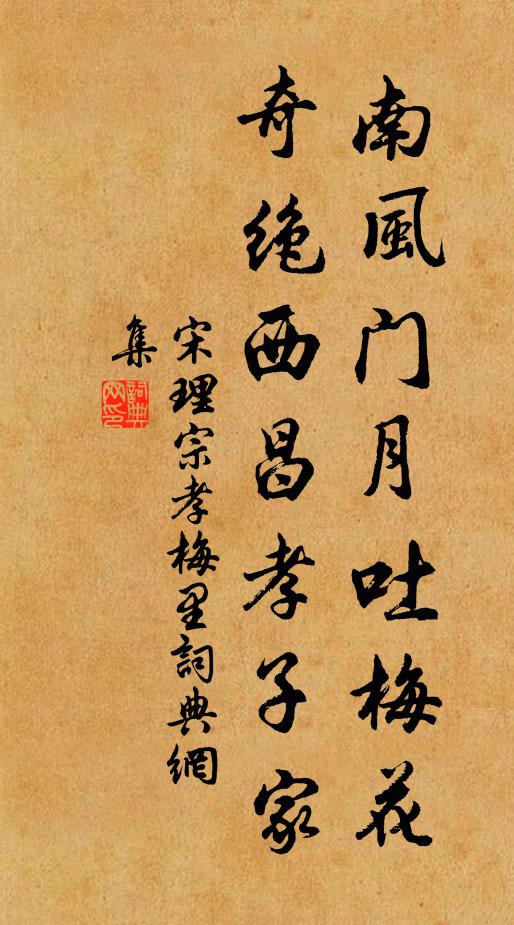 南風门月吐梅花
奇绝西昌孝子家
宋理宗孝梅里詞典網
集
詞典
网印